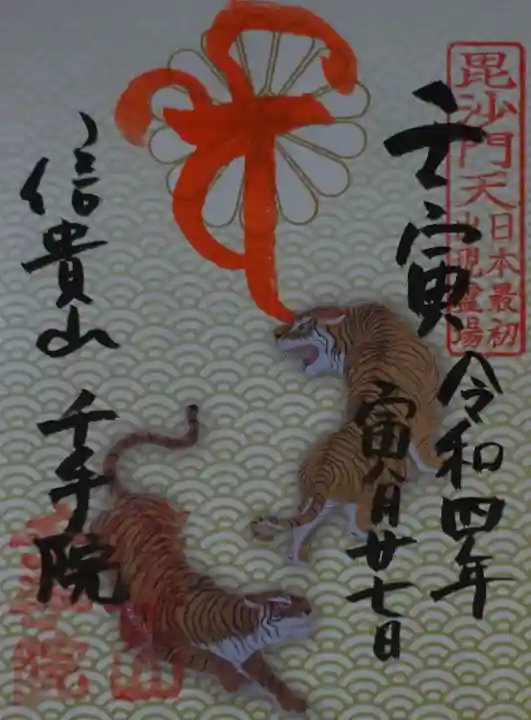 毘沙門天
日本最初
出現霊場
壬寅
令和四年
寅月廿七日
信貴山
千手院